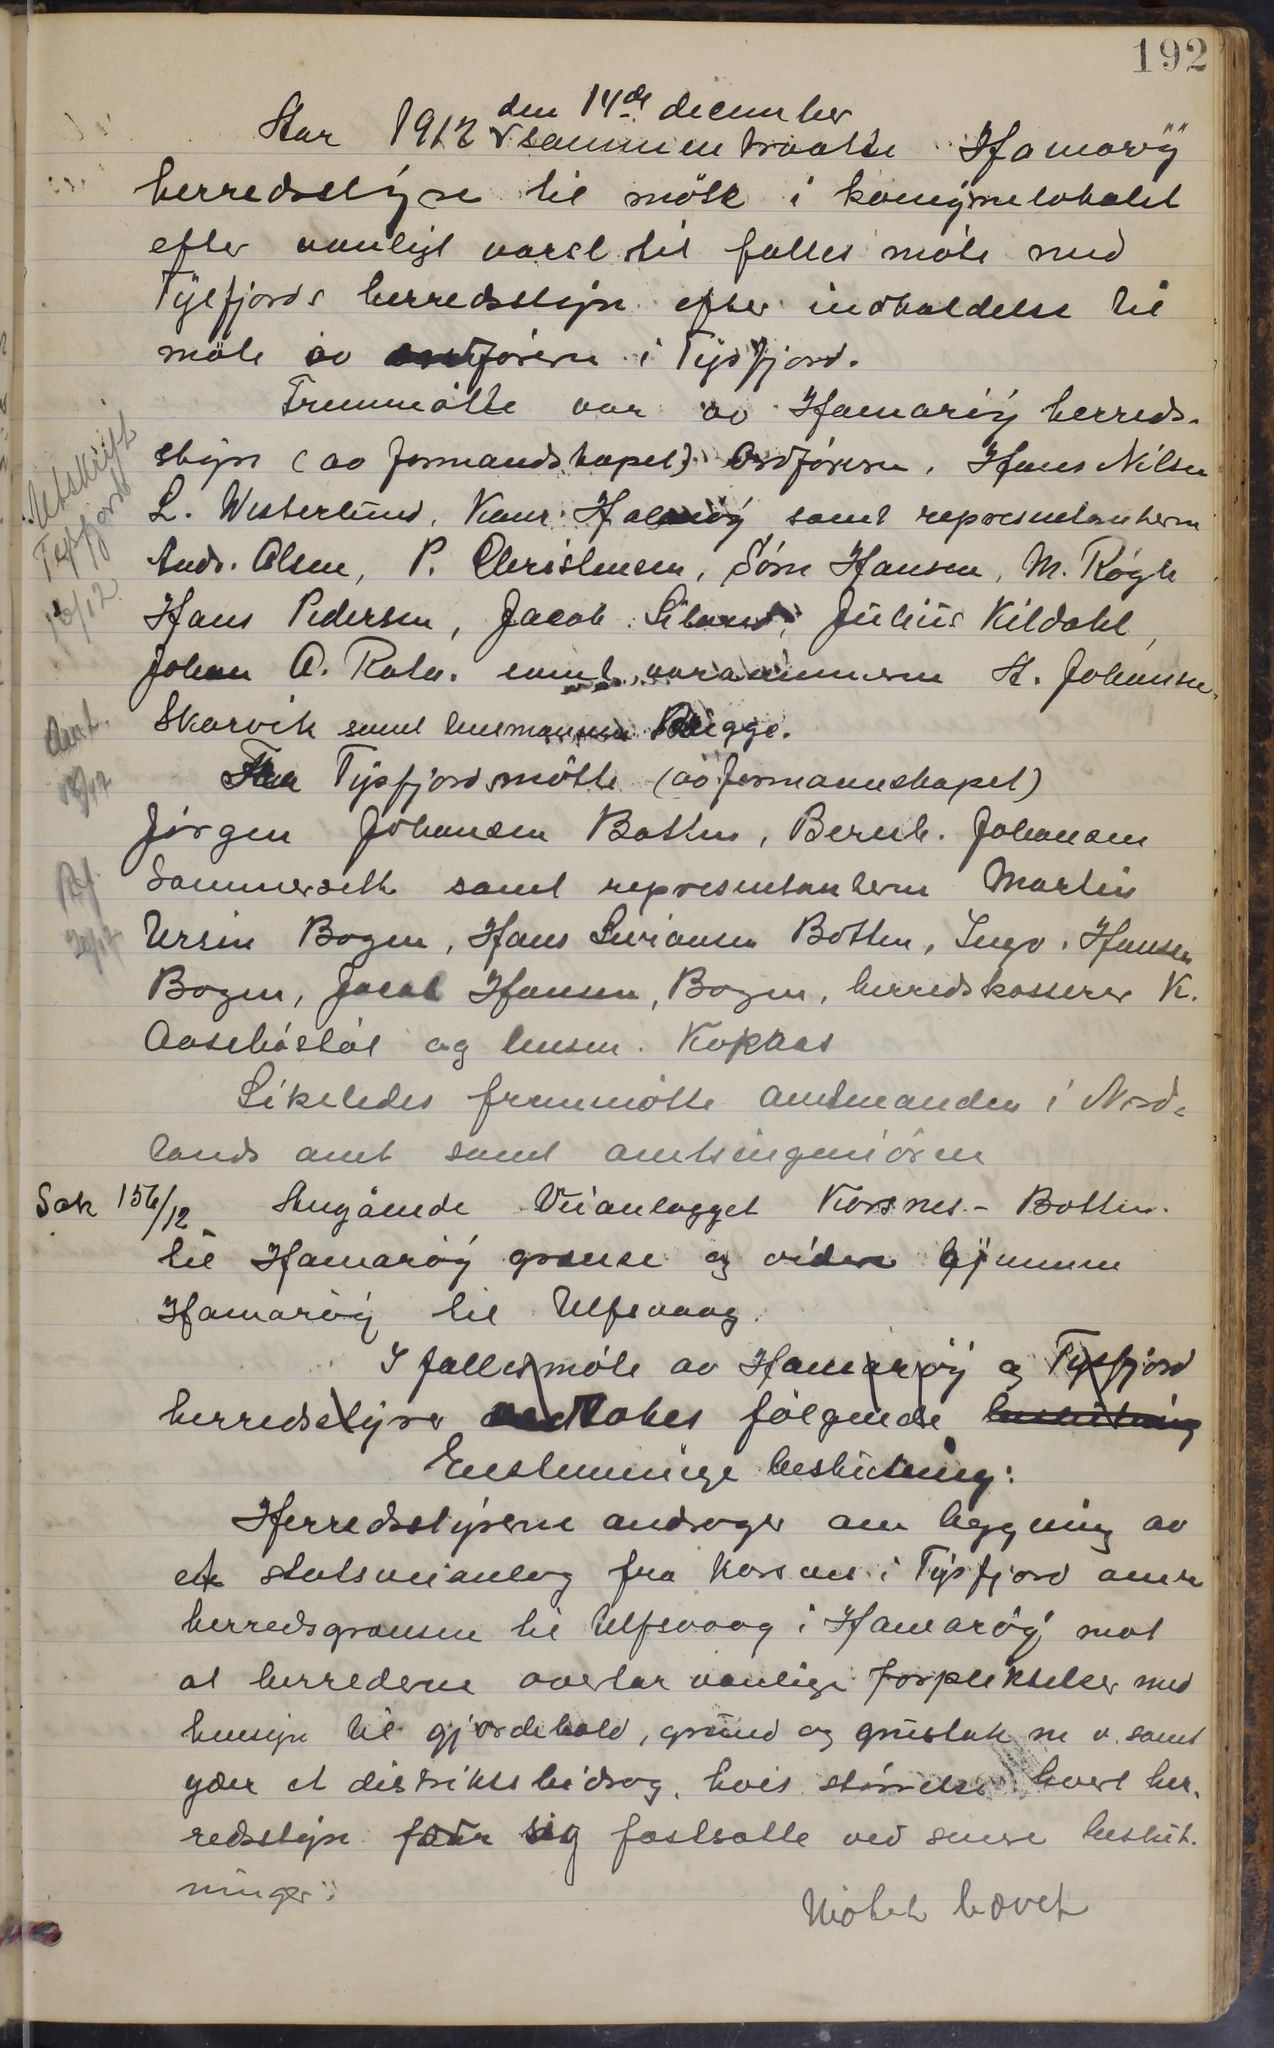 192
den 14de december
Aar 1912 sammentraatte Hamarøy
herredsstyre til møte i komynelokalet
efter vanligt varsel til falles møte med
Tysfjords herredsstyre efter indkaldelse til
møte av ordføreren i Tysfjord.
Fremmøtte var av Hamarøy herreds-
styre (av formandskapet) Ordføreren, Hans Nilsen
L. Westerlund, Kaur. Halmøy samt representanterne
Ands. Olsen, P. Christensen, Søren Hansen, M. Røgh
Hans Pedersen, Jacob, Julius Kildahl,
Johan A. samt varamannen H. Johansen
Skarvik samt lensmannen Brygge.
Utskrift
Tysfjord
18/12
Amt.
18/12
Fra Tysfjord møtte (av formannskapet)
Jørgen Johansen Botten, Bernh. Johansen
Sommerseth samt representanterne Martin
Ursin Bogen, Hans Sivriansen Botten, Ingv. Hansen
Bogen, Jacob Hansen, Bogen, herredskasserer K.
Aasebøstøl og lensm. Kopaas
20/12
Likeledes fremmøtte amtmanden i Nord-
lands amt samt amtsingeniøren
Sak 156/12 Angående Veianlægget Korsnes - Botten
til Hamarøy grænse og videre gjennem
Hamarøy til Ulfsvaag.
I falles møte av Hamarøy og Tysfjord
herredsstyrer vedtokes følgende beslutning
Enstemmige beslutning:
Herredsstyrerne andrager om bygning av
et statsveianlæg fra Korsnes i Tysfjord over
herredsgrænsen til Ulfsvaag i Hamarøy mot
at herrederne overtar vanlige forpliktelser med
hensyn til gjærdehold, grund og grustak m v. samt
yder et distriktsbidrag, hvis størrelse hvert her-
redsstyre for sig fastsætte ved senere beslut-
ninger.
Møtet hævet